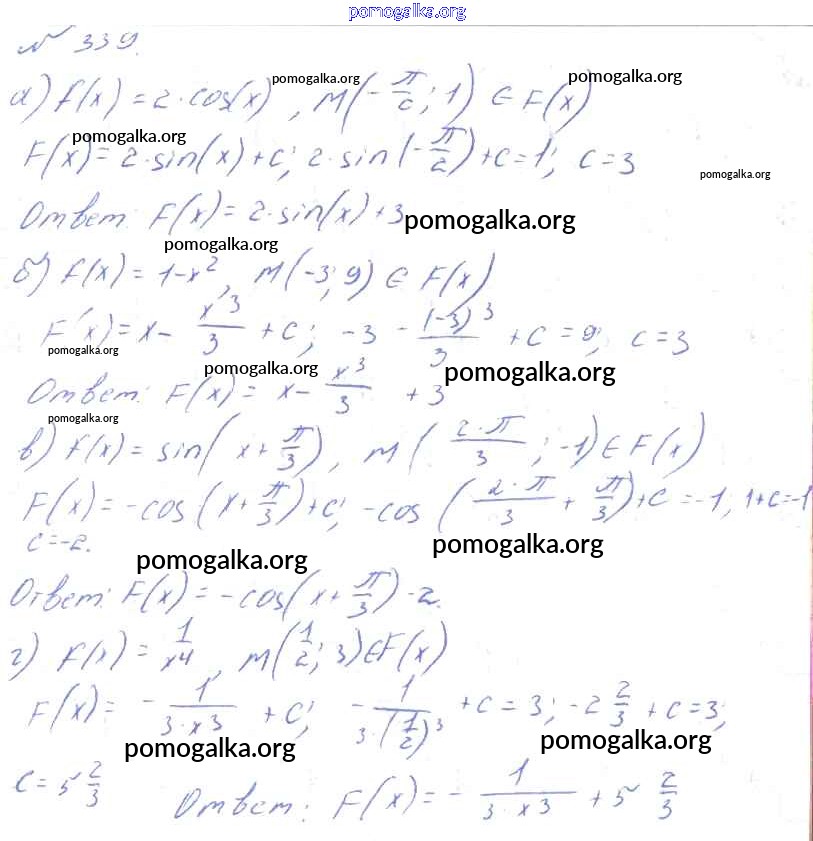 pomogalka.org
№ 339.
а) f(x) = 2·cos(x), M(-π/2; 1) ∈ F(x)
pomogalka.org pomogalka.org
F(x) = 2·sin(x) + C; 2·sin(-π/2) + C = 1; C = 3
pomogalka.org pomogalka.org
Ответ: F(x) = 2·sin(x) + 3
pomogalka.org pomogalka.org
б) f(x) = 1 - x², M(-3; 9) ∈ F(x)
F(x) = x - x³/3 + C; -3 - (-3)³/3 + C = 9; C = 3
pomogalka.org pomogalka.org pomogalka.org
Ответ: F(x) = x - x³/3 + 3
pomogalka.org
в) f(x) = sin(x + π/3), M(2·π/3; -1) ∈ F(x)
F(x) = -cos(x + π/3) + C; -cos(2·π/3 + π/3) + C = -1, 1 + C = -1
C = -2.
pomogalka.org pomogalka.org
Ответ: F(x) = -cos(x + π/3) - 2.
г) f(x) = 1/x⁴, M(1/2; 3) ∈ F(x)
F(x) = -1/3·x³ + C; -1/3·(1/2)³ + C = 3; -2 2/3 + C = 3;
pomogalka.org pomogalka.org
C = 5 2/3 Ответ: F(x) = -1/3·x³ + 5 2/3